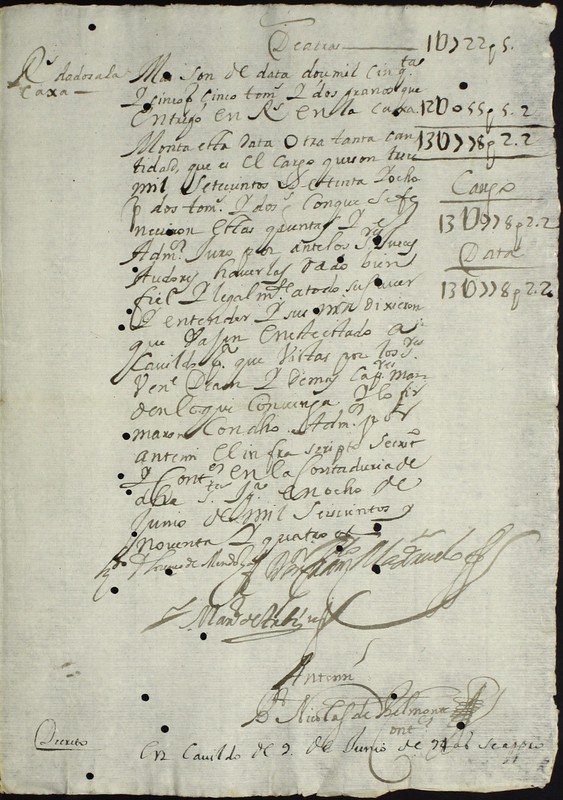 De atras 1U722p5.
Rs dados a la Caxa
Mas son de data dosmil cinqtas
Y cinco ps cinco toms Y dos granos que
Entrego en Rs en la Caxa. 12U055p5.2
Monta esta data Otra tanta can 13U778p2.2
tidad, que es El Cargo que son trece
mil setecientos Y setenta Y ocho
ps dos toms. Y dos gs Con que se fe
necieron Estas quentas Y el
Admor Juro por ante los Sres Jueces
Audores haverlas dado bien
fiel Y legalmte a todo su saver
Y entender Y sus mrds dixeron
que Pasen en este estado a
Cavildo pa que Vistas por los Sres
Vene Dean Y Demas Capres man
den lo que Convenga Y lo fir
maron Con dho Admor por
ante mi El infra scripto Secreto
Y Contor en la Contaduria de
dha Sta Iga en ocho de
Junio de mil seiscientos y
noventa Y quatro as
Cargo
13U778p2.2
Data
13U778p2.2
de Mendoza
Manl de
Ante mi
Dn Nicolas de Belmonte
Contor
Decreto
En Cavildo de 9. de Junio de 94 as se aprovo